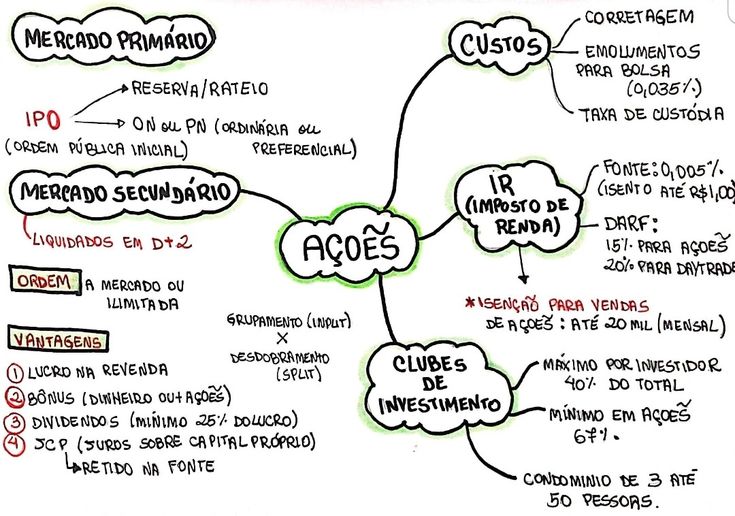 MERCADO PRIMÁRIO
IPO
(ORDEM PÚBLICA INICIAL)
RESERVA/RATEIO
ON OU PN (ORDINÁRIA OU
PREFERENCIAL)
MERCADO SECUNDÁRIO
LIQUIDADOS EM D+2
ORDEM A MERCADO OU
ILIMITADA
VANTAGENS
1 LUCRO NA REVENDA
2 BÔNUS (DINHEIRO OU + AÇOẼS)
3 DIVIDENDOS (MÍNIMO 25% DO LUCRO)
4 JCP (JUROS SOBRE CAPITAL PRÓPRIO)
RETIDO NA FONTE
AÇOẼS
GRUPAMENTO (INPLIT)
X
DESDOBRAMENTO
(SPLIT)
CUSTOS
CORRETAGEM
EMOLUMENTOS
PARA BOLSA
(0,035%)
TAXA DE CUSTÓDIA
IR
(IMPOSTO DE
RENDA)
FONTE: 0,005%
(ISENTO ATÉ R$1,00)
DARF:
15% PARA AÇOẼS
20% PARA DAYTRADE
*ISENÇÃO PARA VENDAS
DE AÇOẼS: ATÉ 20 MIL (MENSAL)
CLUBES
DE
INVESTIMENTO
MÁXIMO POR INVESTIDOR
40% DO TOTAL
MÍNIMO EM AÇOẼS
67%.
CONDOMINIO DE 3 ATÉ
50 PESSOAS.